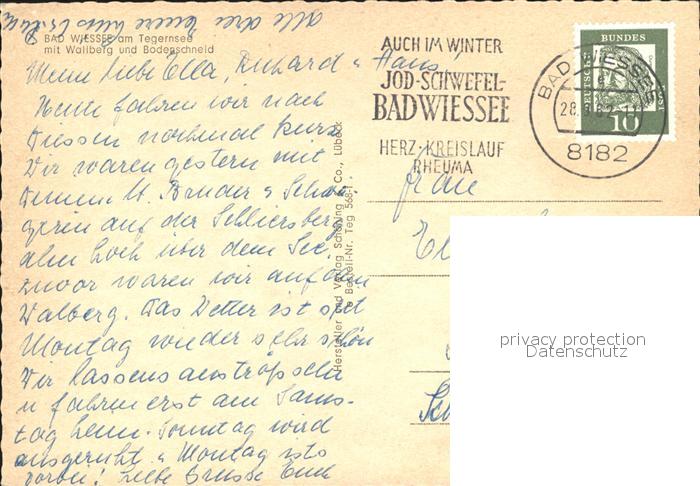 alle drei Eure
BAD WIESSEE am Tegernsee
mit Wallberg und Bodenschneid
Meine liebe Ella, Richard u Hans,
Heute fahren wir nach
Füssen nochmal kurz
Wir waren gestern mit
Bruder u Schwä-
gerin auf der Schliersberg
alm hoch über dem See.
zuvor waren wir auf dem
Walberg. Das Wetter ist seit
Montag wieder sehr schön
Wir lassens
u fahren erst am Sams-
tag heim. Sonntag wird
ausgeruht u Montag ists
vorbei! Liebe Grüsse Euch
Hersteller und Verlag Schöning & Co., Lübeck
Bestell-Nr. Teg
AUCH IM WINTER
JOD-SCHWEFEL-
BAD WIESSEE
HERZ-KREISLAUF
RHEUMA
BAD WIESSEE
8182
DEUTSCHE BUNDESPOST
10
Frau
privacy protection
Datenschutz